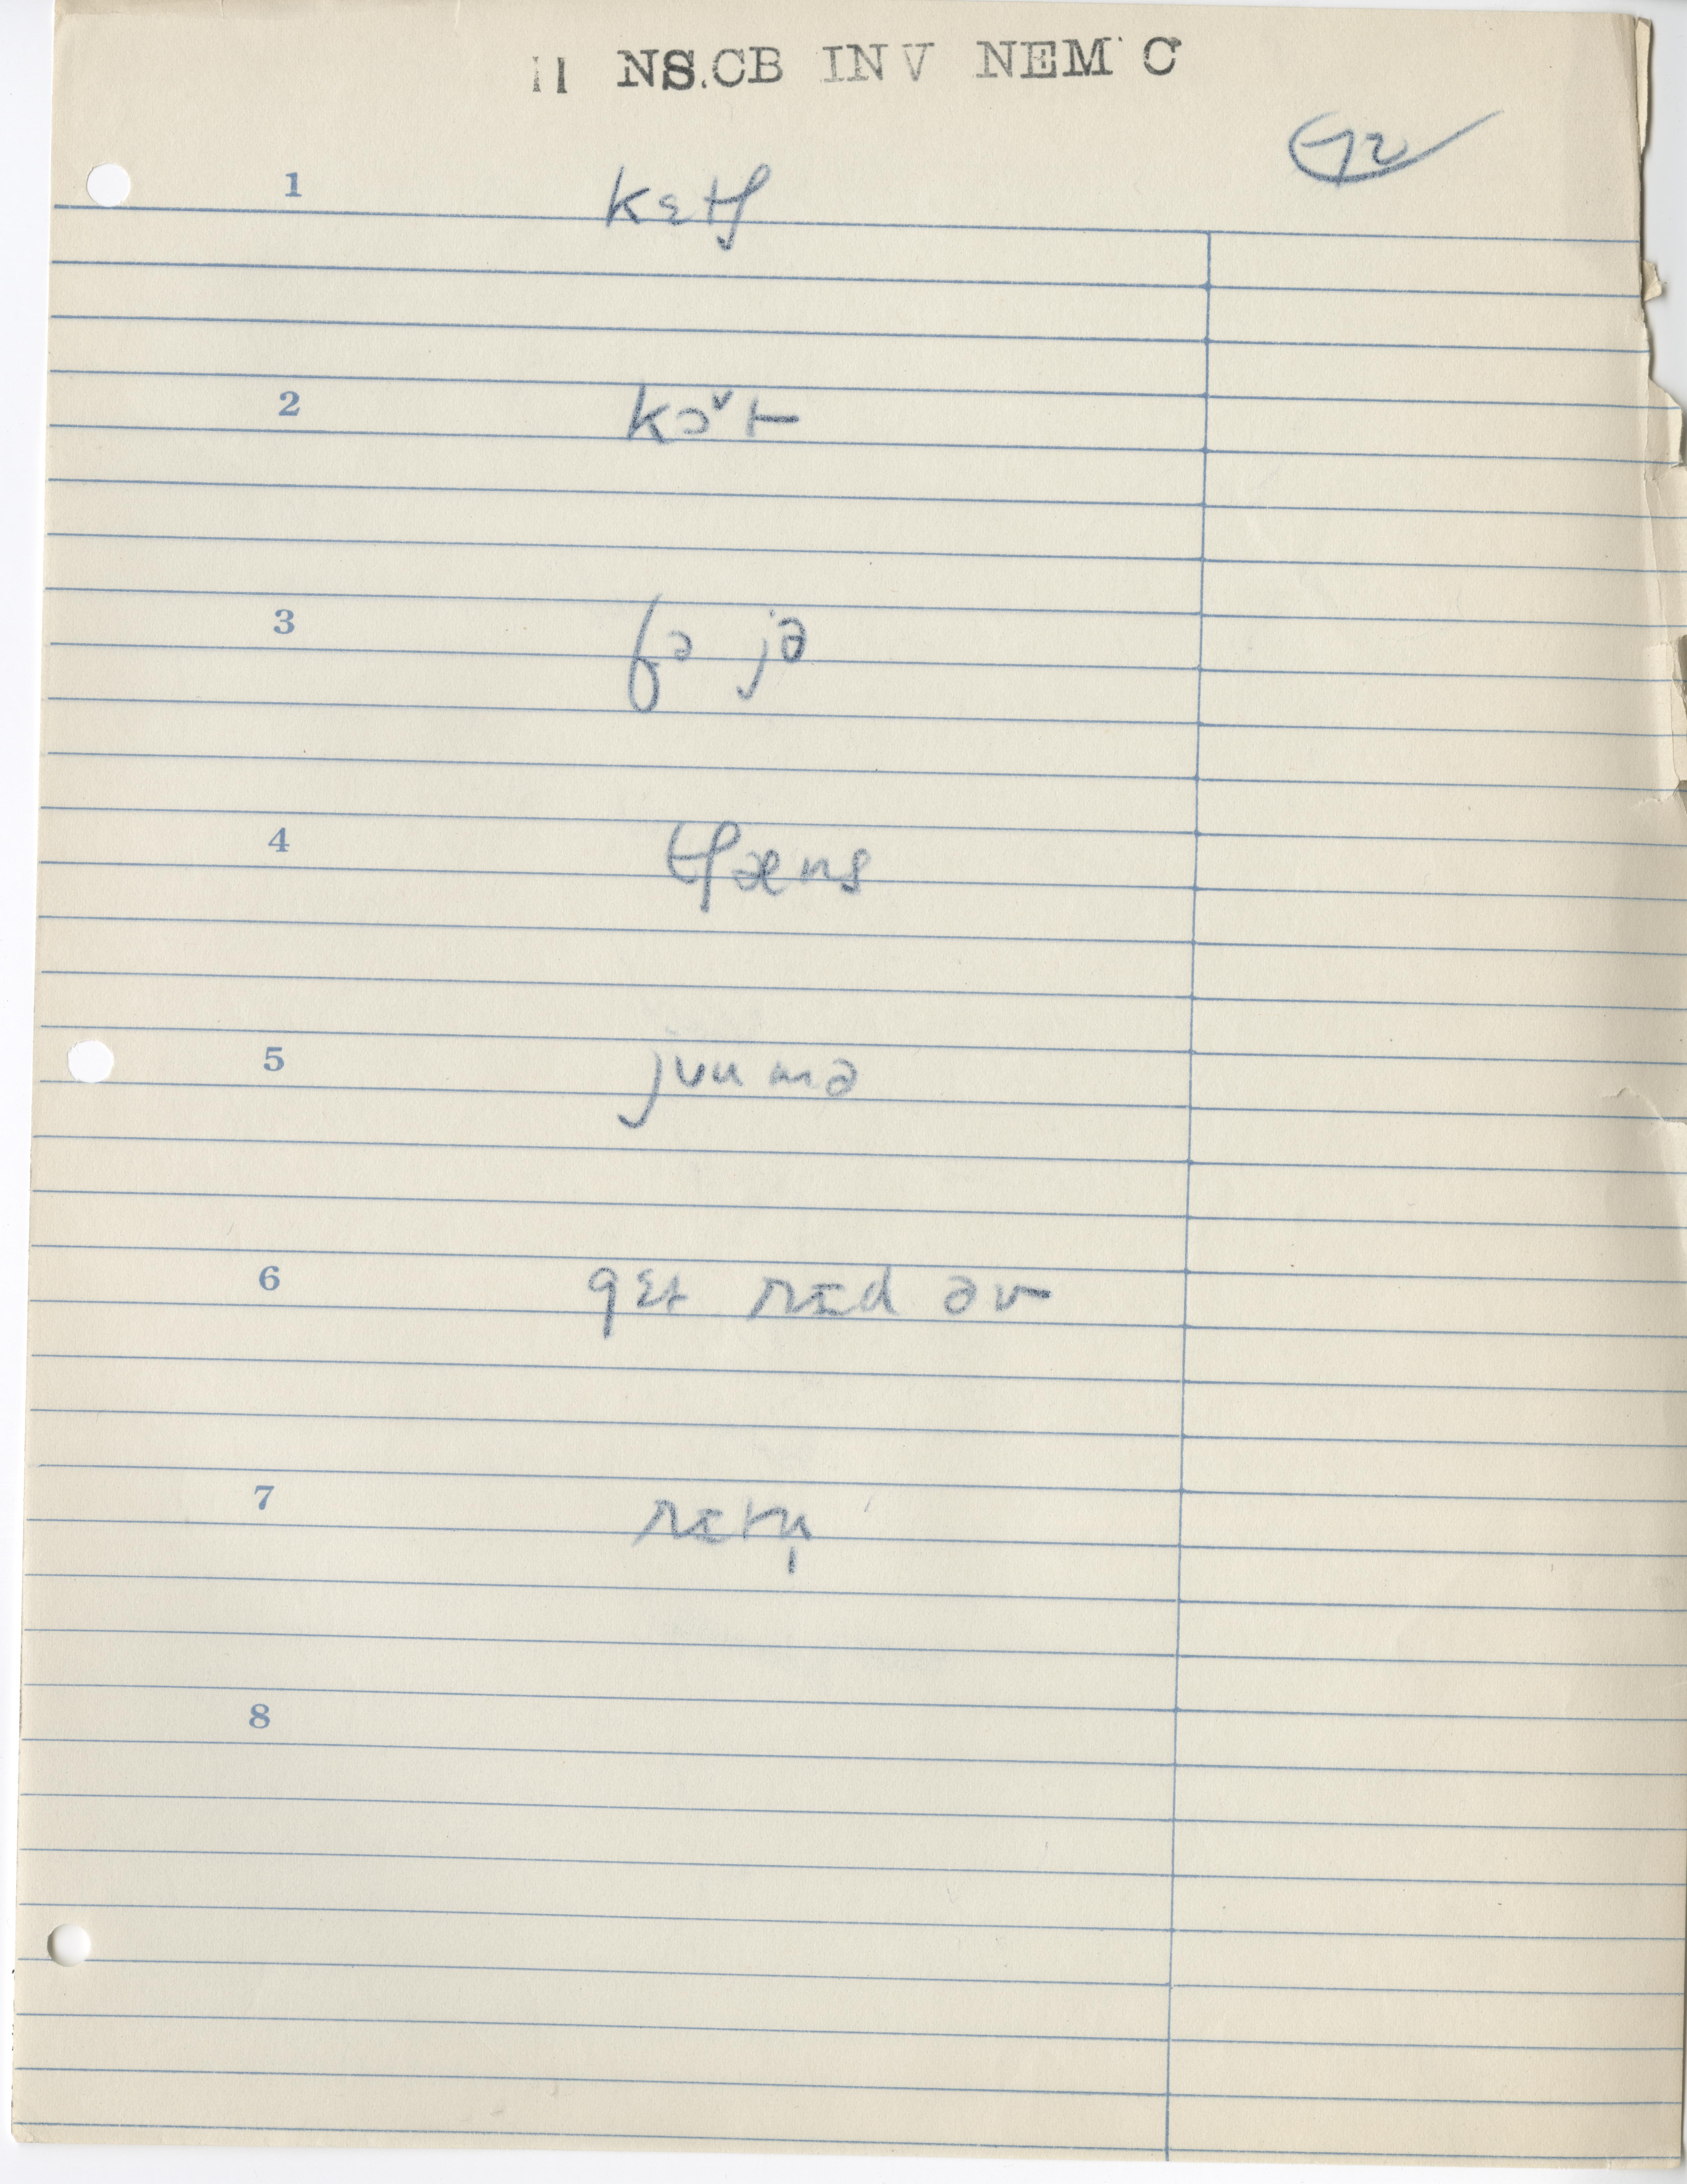 11 NS.CB INV NEM C
72
1 kɛtʃ
2 kɔ˅t
3 fɔ jə
4 tʃæns
5 jvumə
6 gɛt rɪd əv
7 rɪtn̩
8